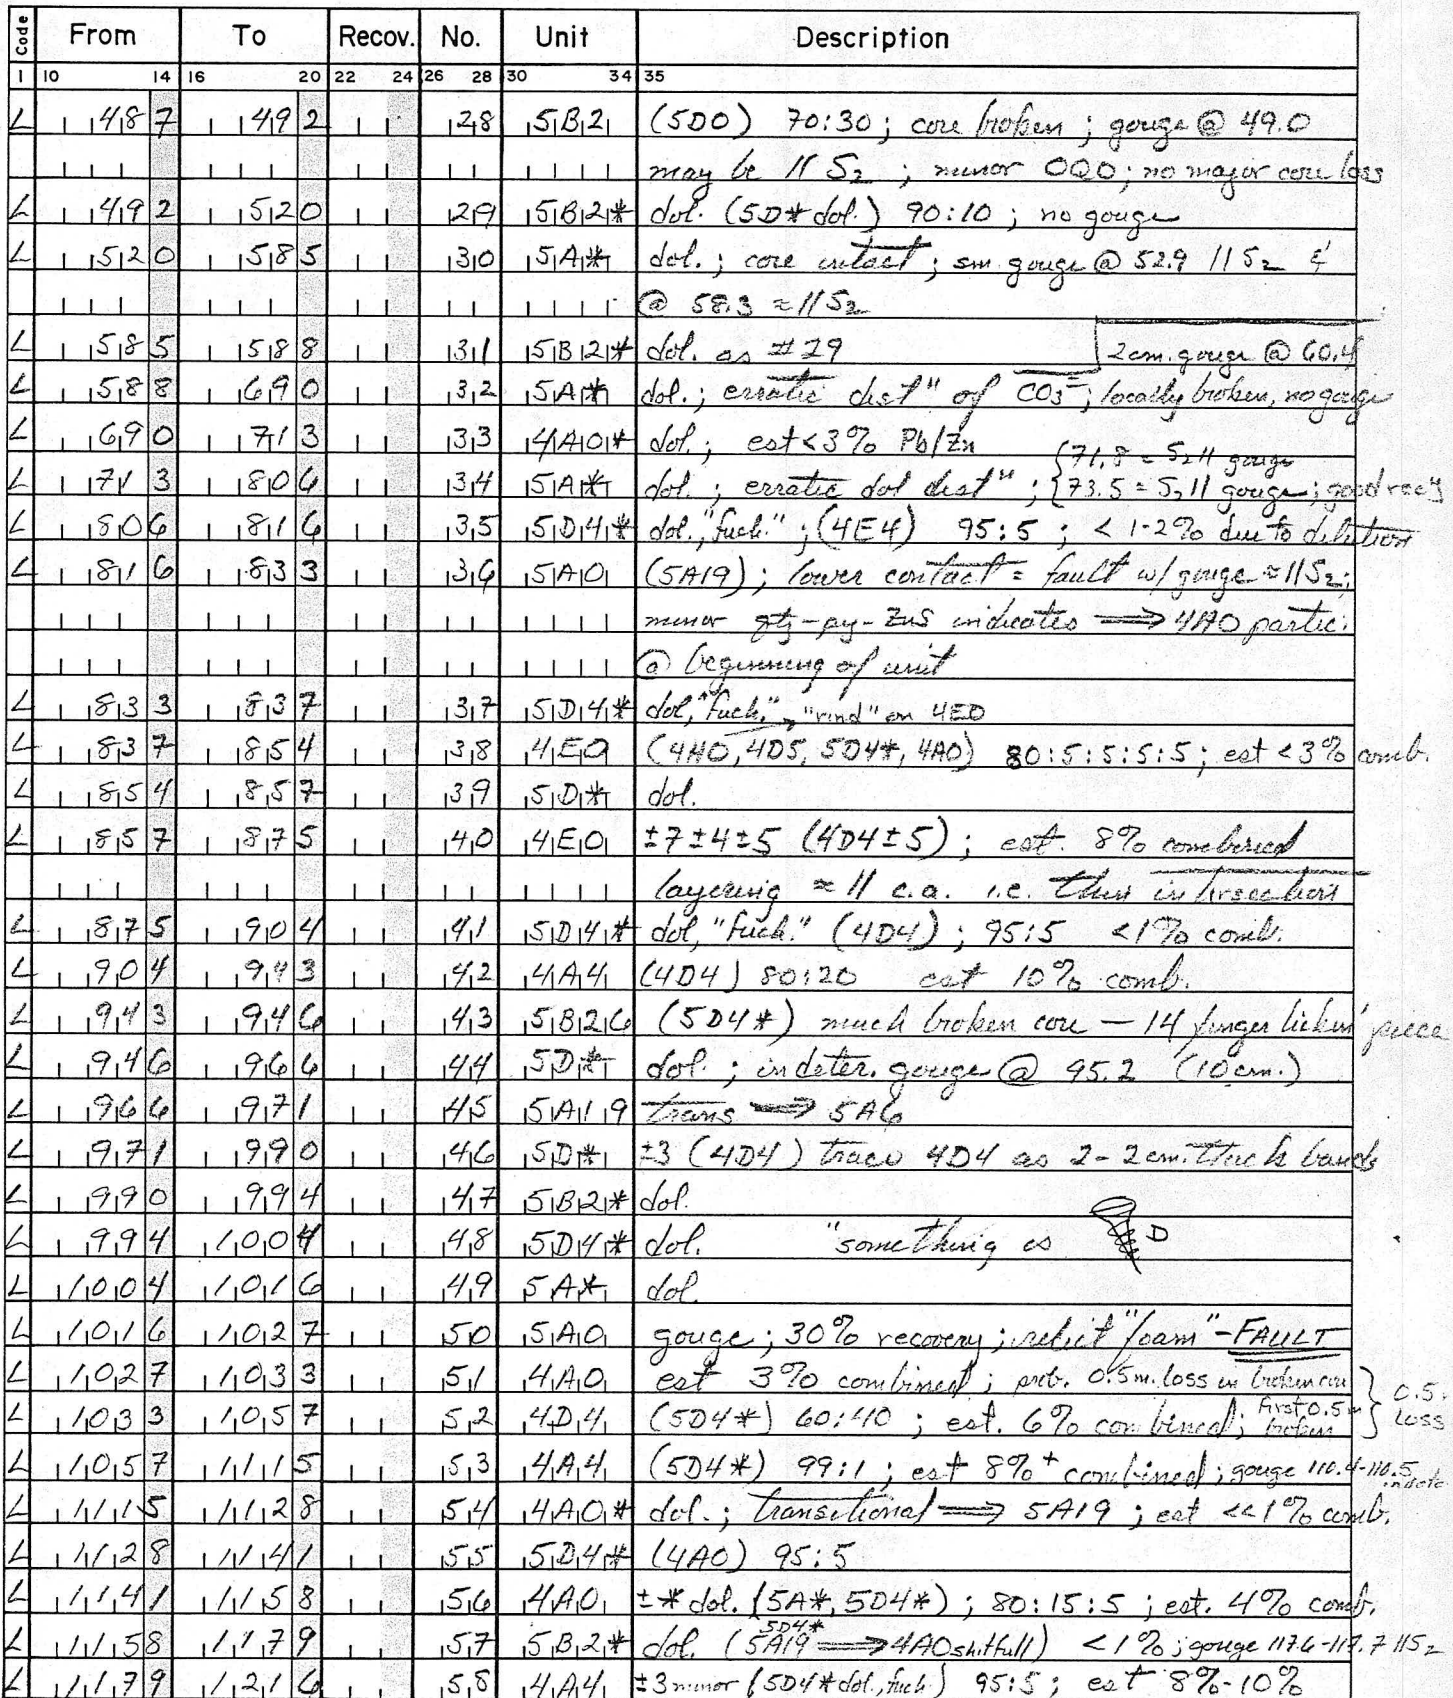 Code From To Recov. No. Unit Description
1 10 14 16 20 22 24 26 28 30 34 35
L 487 492 28 5B2 (5D0) 70:30; core broken; gouge @ 49.0
may be // S2; minor OQO; no major core loss
L 492 520 29 5B2* dol. (5D* dol.) 90:10; no gouge
L 520 585 30 5A* dol.; core intact; sm. gouge @ 52.9 // S2 &
@ 58.3 ≈ // S2
L 585 588 31 5B2* dol. as #29 2cm. gouge @ 60.4
L 588 690 32 5A* dol.; erratic dist" of CO3=; locally broken, no gouge
L 690 713 33 4A0* dol.; est <3% Pb/Zn
{71.8 = S2 // gouge
L 713 806 34 5A* dol.; erratic dol dist"; {73.5 = S2 // gouge; good rec'y
L 806 816 35 5D4* dol., "fuch."; (4E4) 95:5; < 1-2% due to dilution
L 816 833 36 5A0 (5A19); lower contact = fault w/ gouge ≈ // S2;
minor qtz-py-ZnS indicates ⟹ 4A0 partic.
@ beginning of unit
L 833 837 37 5D4* dol, "fuch.", "rind" on 4E0
L 837 854 38 4E0 (4H0, 4D5, 5D4*, 4A0) 80:5:5:5:5; est <3% comb.
L 854 857 39 5D* dol.
L 857 875 40 4E0 ±7±4±5 (4D4±5); est. 8% combined
layering ≈ // c.a. i.e. thin intersection
L 875 904 41 5D4* dol, "fuch." (4D4); 95:5 <1% comb.
L 904 943 42 4A4 (4D4) 80:20 est 10% comb.
L 943 946 43 5B26 (5D4*) much broken core — 14 finger lickin' piece
L 946 966 44 5D* dol.; indeter. gouge @ 95.2 (10cm.)
L 966 971 45 5A19 trans ⟹ 5A6
L 971 990 46 5D* ±3 (4D4) trace 4D4 as 2-2cm. thick bands
L 990 994 47 5B2* dol.
L 994 1004 48 5D4* dol. "something is D
L 1004 1016 49 5A* dol.
L 1016 1027 50 5A0 gouge; 30% recovery; relict "foam" - FAULT
L 1027 1033 51 4A0 est 3% combined; prob. 0.5m. loss in broken core } 0.5
L 1033 1057 52 4D4 (5D4*) 60:40; est. 6% combined; first 0.5m broken } LOSS
L 1057 1115 53 4A4 (5D4*) 99:1; est 8%+ combined; gouge 110.4-110.5 indete
L 1115 1128 54 4A0* dol.; transitional ⟹ 5A19; est <<1% comb.
L 1128 1141 55 5D4* (4A0) 95:5
L 1141 1158 56 4A0 ±* dol. (5A*, 5D4*); 80:15:5; est. 4% comb.
5D4*
L 1158 1179 57 5B2* dol. (5A19 ⟹ 4A0 shitfull) <1%; gouge 117.6-117.7 // S2
L 1179 1216 58 4A4 ±3 minor (5D4* dol., fuch.) 95:5; est 8%-10%